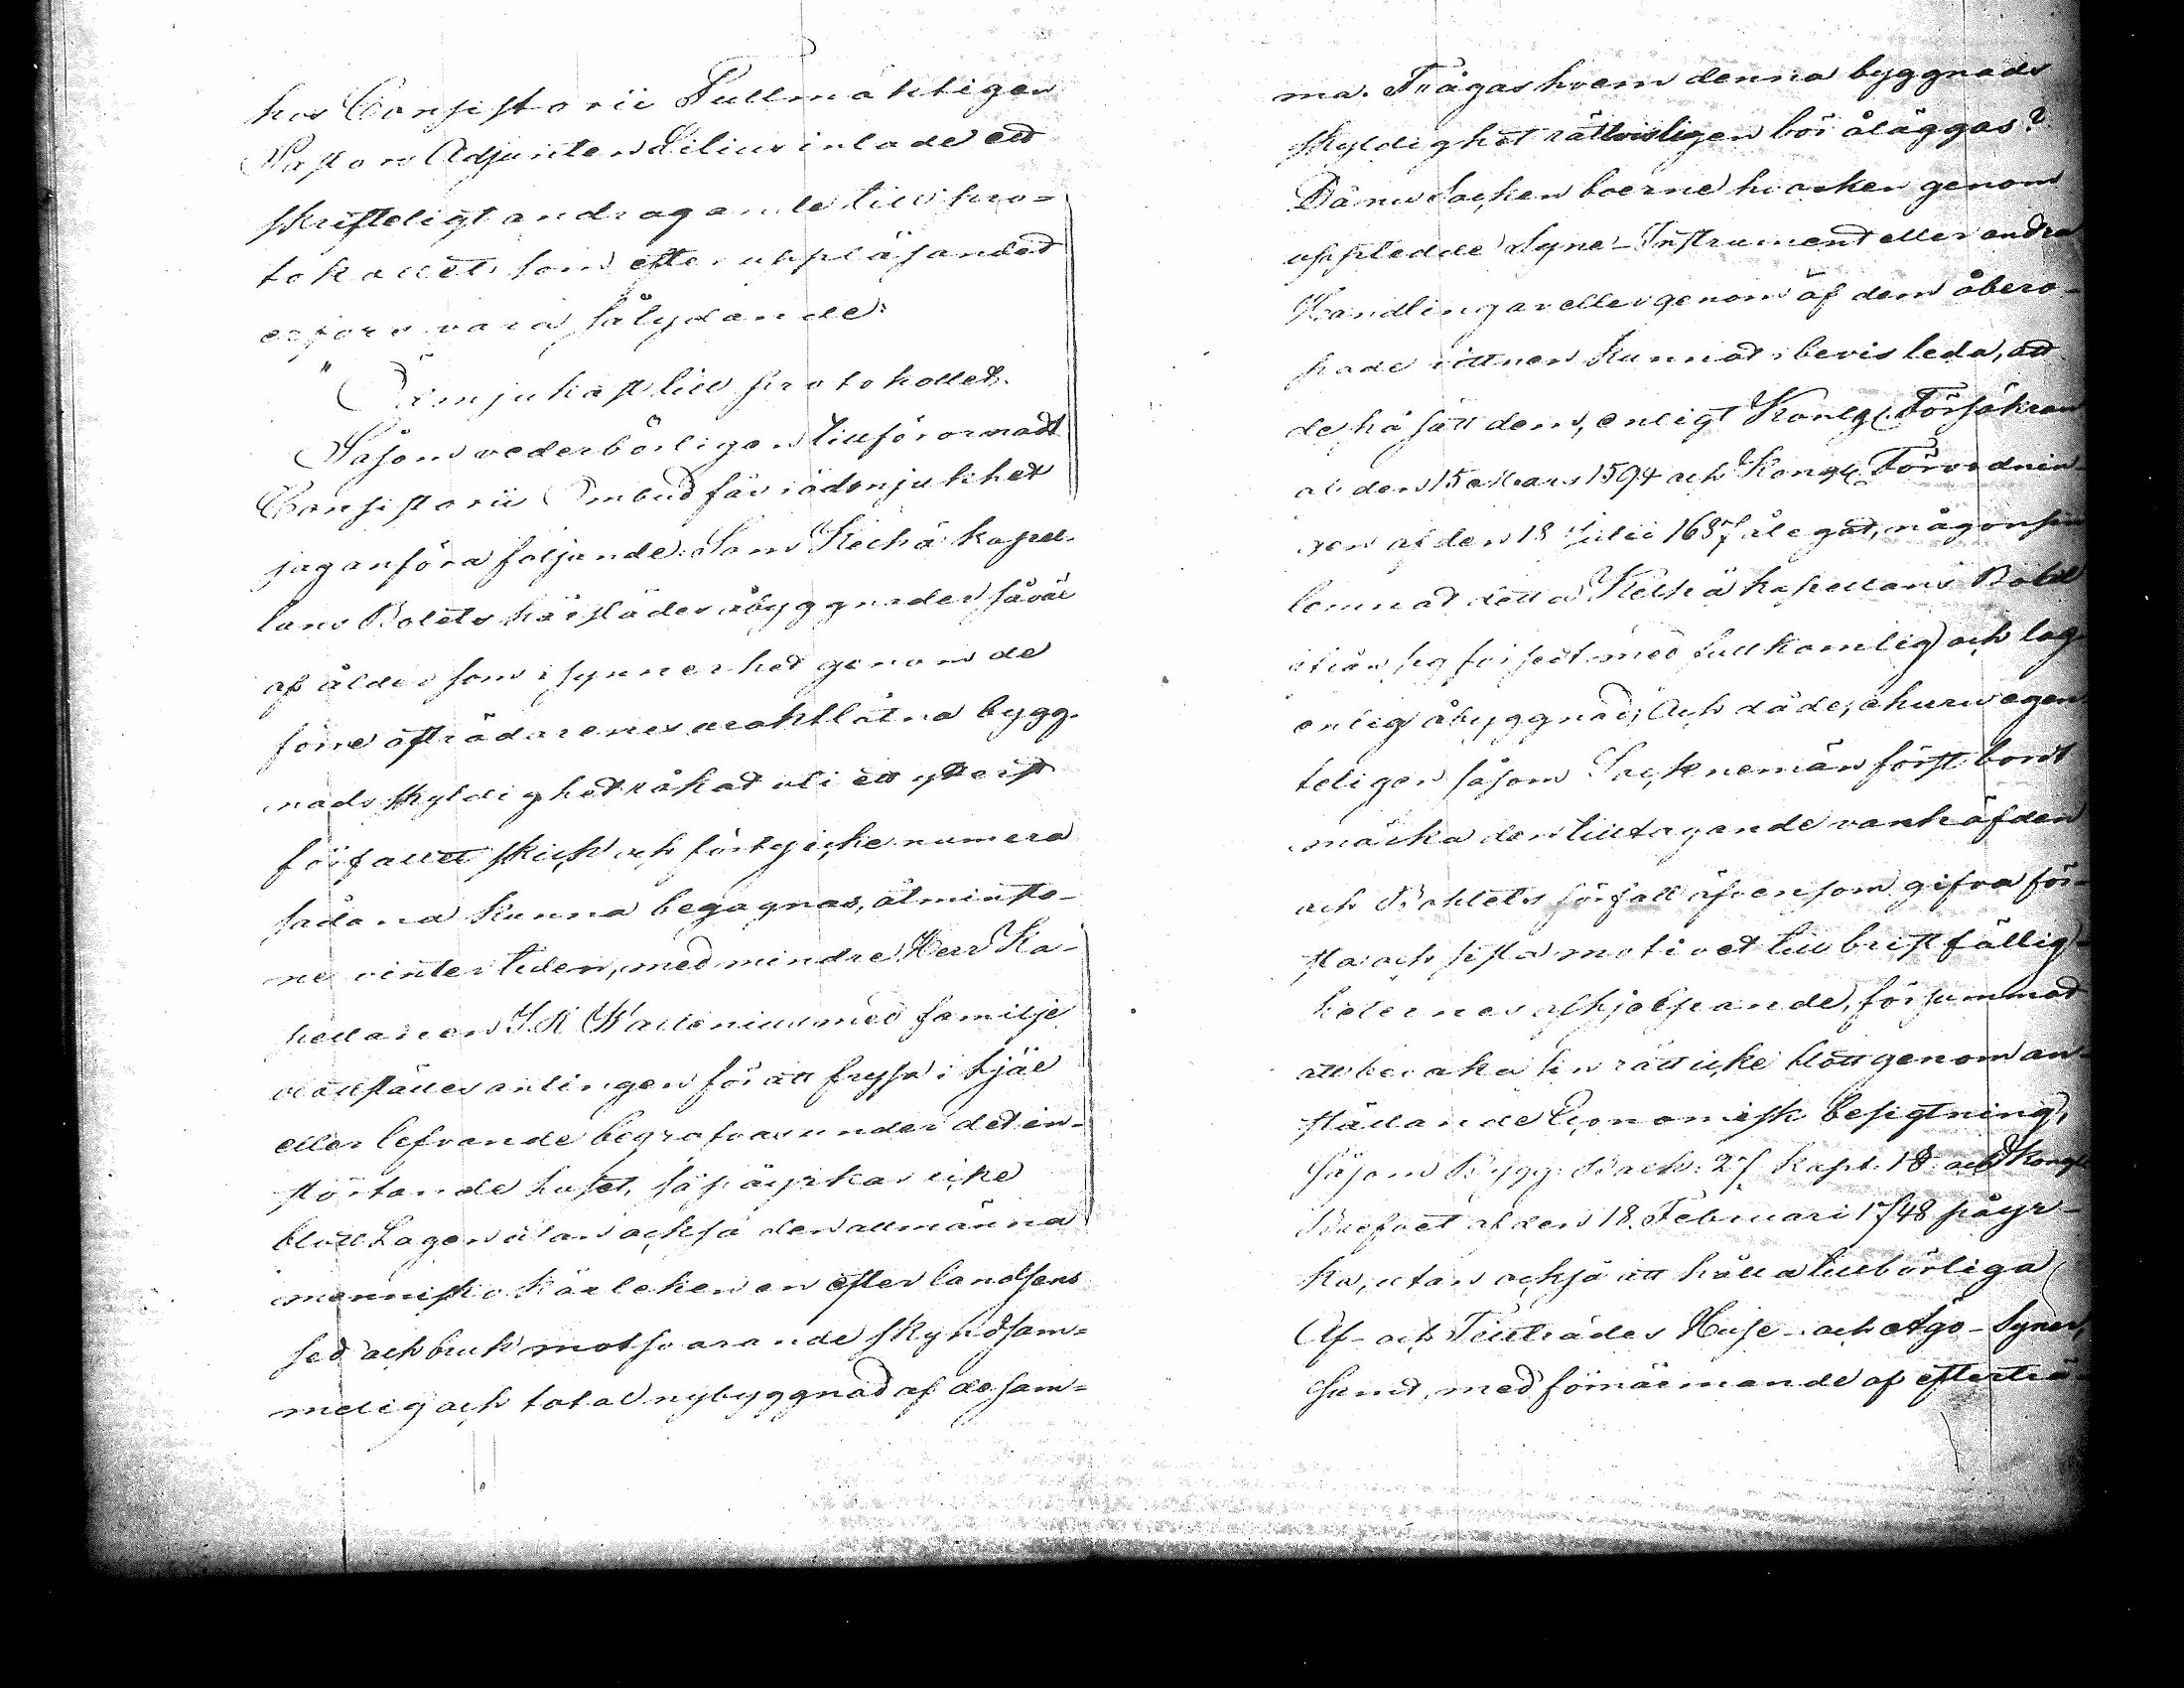 hos Consistorii Fullmäktigen
Pastors Adjuncten Lilius inlade ett
skrifteligt andragande till pro-
tokollet, som efter uppläsandet
erfors vara sålydande:
" Ödmjukast till protokollet.
Såsom vederbörligen tillförornadt
Consistorii Ombud får i ödmjukhet
jag anföra följande: Som Kelhä kapel-
lans Bolets härstädes åbyggnader såväl
af ålder som i synnerhet genom de
förre afträdarenes uraktlåtna bygg-
nads skyldighet råkat uti ett ytterst
förfallet skick och förty icke numera
sådana kunna begagnas, åtminsto-
ne vintertiden, med mindre Herr Ka-
pellanen J. K. Walleniusmed familje
blottställes antingen för att frysa i hjäl
eller lefvande begrafvas under det in-
störtande huset, så påyrkar icke
blott Lagen utan också den allmänna
mennisko kärleken en efter landsens
sed och bruk motsvarande skyndsam-
melig och total nybyggnad af desam-
ma. Frågas hvem denna byggnads
skyldighet rättvisligen bör åläggas?
Då nu Sockenboerne hvarken genom
uppledde Syne-Instrument eller andra
Handlingar eller genom af dem åbero-
pade vittnen kunnat i bevis leda, att
de på sätt dem, enligt Kongl. Försäkran
af den 15 Mars 1594 och Kongl. Förordnin-
gen af den 18 Julii 1687 ålegat, någonsin
lemnat detta Kelhä kapellans Bohl
ifrån sig försedt med fullkomlig och lag-
enlig åbyggnad; Och då de, ehuru egen-
teligen såsom Socknemän först bordt
märka den tilltagande vanhäfden
och Bohlets förfall äfvensom gifva för-
sta och sista motivet till bristfällig-
heternes afhjelpande, försummat
att bevaka sin rätt icke blott genom an-
ställande Economisk besigtning,
såsom Bygg: Balk: 27 Kapt. 18 och Kongl
Brefvet af den 18. Februari 1748 påyr-
ka, utan också att hålla tillbörliga
Af- och Tillträdes Huse- och Ägo-Syner,
samt, med förnärmande af efterträ-